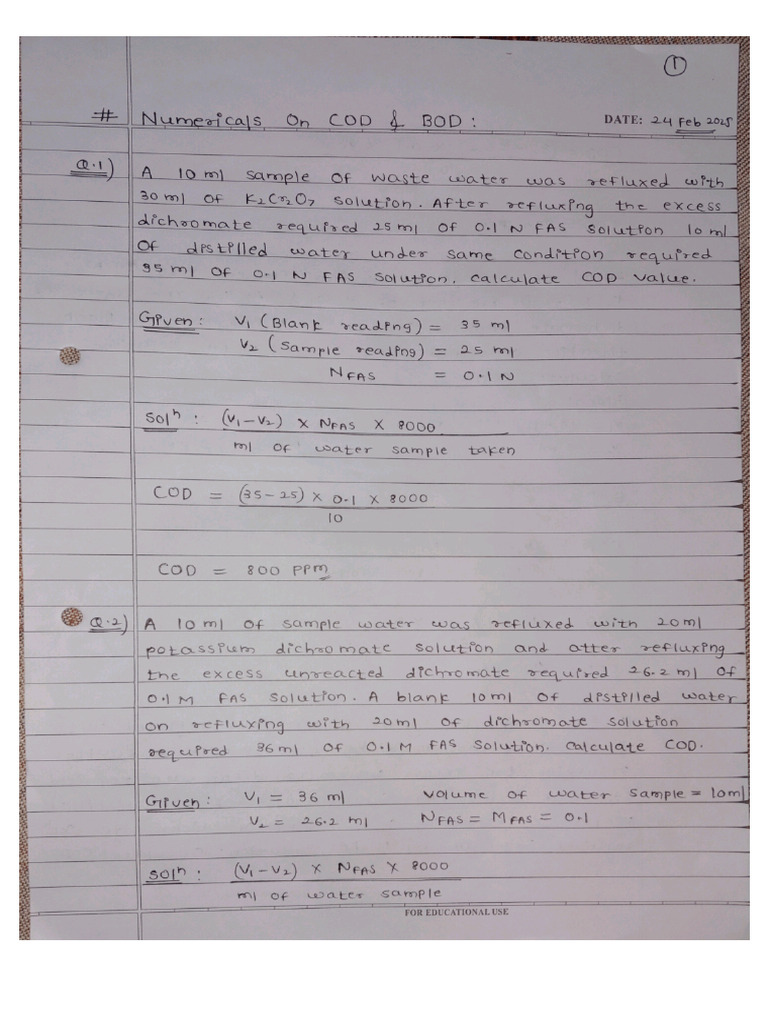 ①
# Numericals on COD & BOD : DATE: 24 Feb 2025
Q.1) A 10 ml sample of waste water was refluxed with
30 ml of K2Cr2O7 solution. After refluxing the excess
dichromate required 25 ml of 0.1 N FAS solution 10 ml
of distilled water under same condition required
35 ml of 0.1 N FAS solution. Calculate COD value.
Given : V1 (Blank reading) = 35 ml
V2 (Sample reading) = 25 ml
NFAS = 0.1 N
Solⁿ : (V1 – V2) × NFAS × 8000
ml of water sample taken
COD = (35 – 25) × 0.1 × 8000
10
COD = 800 ppm
Q.2) A 10 ml of sample water was refluxed with 20 ml
potassium dichromate solution and atter refluxing
the excess unreacted dichromate required 26.2 ml of
0.1 M FAS solution. A blank 10 ml of distilled water
on refluxing with 20 ml of dichromate solution
required 36 ml of 0.1 M FAS solution. Calculate COD.
Given : V1 = 36 ml volume of water sample = 10 ml
V2 = 26.2 ml NFAS = MFAS = 0.1
Solⁿ : (V1 – V2) × NFAS × 8000
ml of water sample
FOR EDUCATIONAL USE